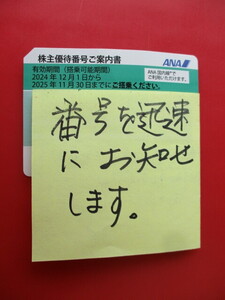 株主優待番号ご案内書
ANA
有効期間（搭乗可能期間）
2024年12月1日から
2025年11月30日までにご搭乗ください。
ANA国内線で
ご利用いただけます。
番号を迅速
にお知せ
します。